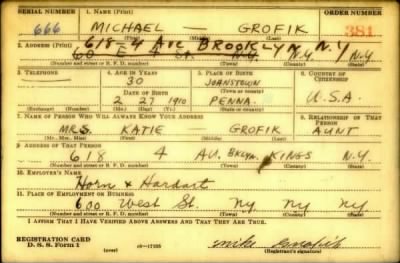 SERIAL NUMBER 1. NAME (Print) ORDER NUMBER
666 MICHAEL — GROFIK 381
(First) (Middle) (Last)
2. ADDRESS (Print) 618-4 AVE BROOKLYN N.Y
60 E 4 St. N.Y. N.Y. N.Y
(Number and street or R. F. D. number) (Town) (County) (State)
3. TELEPHONE 4. AGE IN YEARS 5. PLACE OF BIRTH 6. COUNTRY OF CITIZENSHIP
30 JOHNSTOWN
DATE OF BIRTH PENNA. U.S.A
2 27 1910
(Exchange) (Number) (Mo.) (Day) (Yr.) (State or country)
7. NAME OF PERSON WHO WILL ALWAYS KNOW YOUR ADDRESS 8. RELATIONSHIP OF THAT PERSON
MRS. KATIE — GROFIK AUNT
(Mr., Mrs., Miss) (First) (Middle) (Last)
9. ADDRESS OF THAT PERSON
618 4 AV. BKLYN. KINGS N.Y.
(Number and street or R. F. D. number) (Town) (County) (State)
10. EMPLOYER'S NAME
Horn & Hardart
11. PLACE OF EMPLOYMENT OR BUSINESS
600 West St. Ny Ny Ny
(Number and street or R. F. D. number) (Town) (County) (State)
I AFFIRM THAT I HAVE VERIFIED ABOVE ANSWERS AND THAT THEY ARE TRUE.
REGISTRATION CARD
D. S. S. Form 1 (over) 16—17105 Mike Grofik
(Registrant's signature)